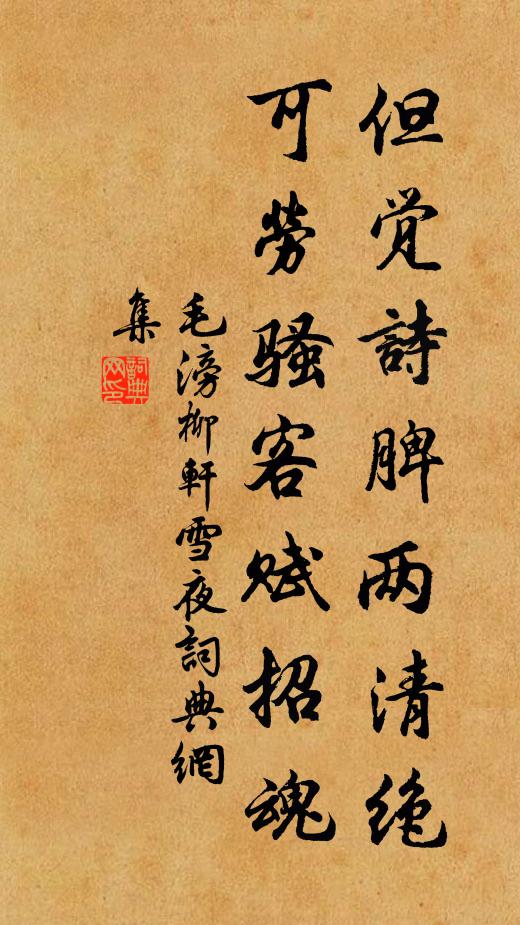 但觉詩脾两清绝
可劳騷客赋招魂
毛滂柳軒雪夜詞典網
集
詞典网印